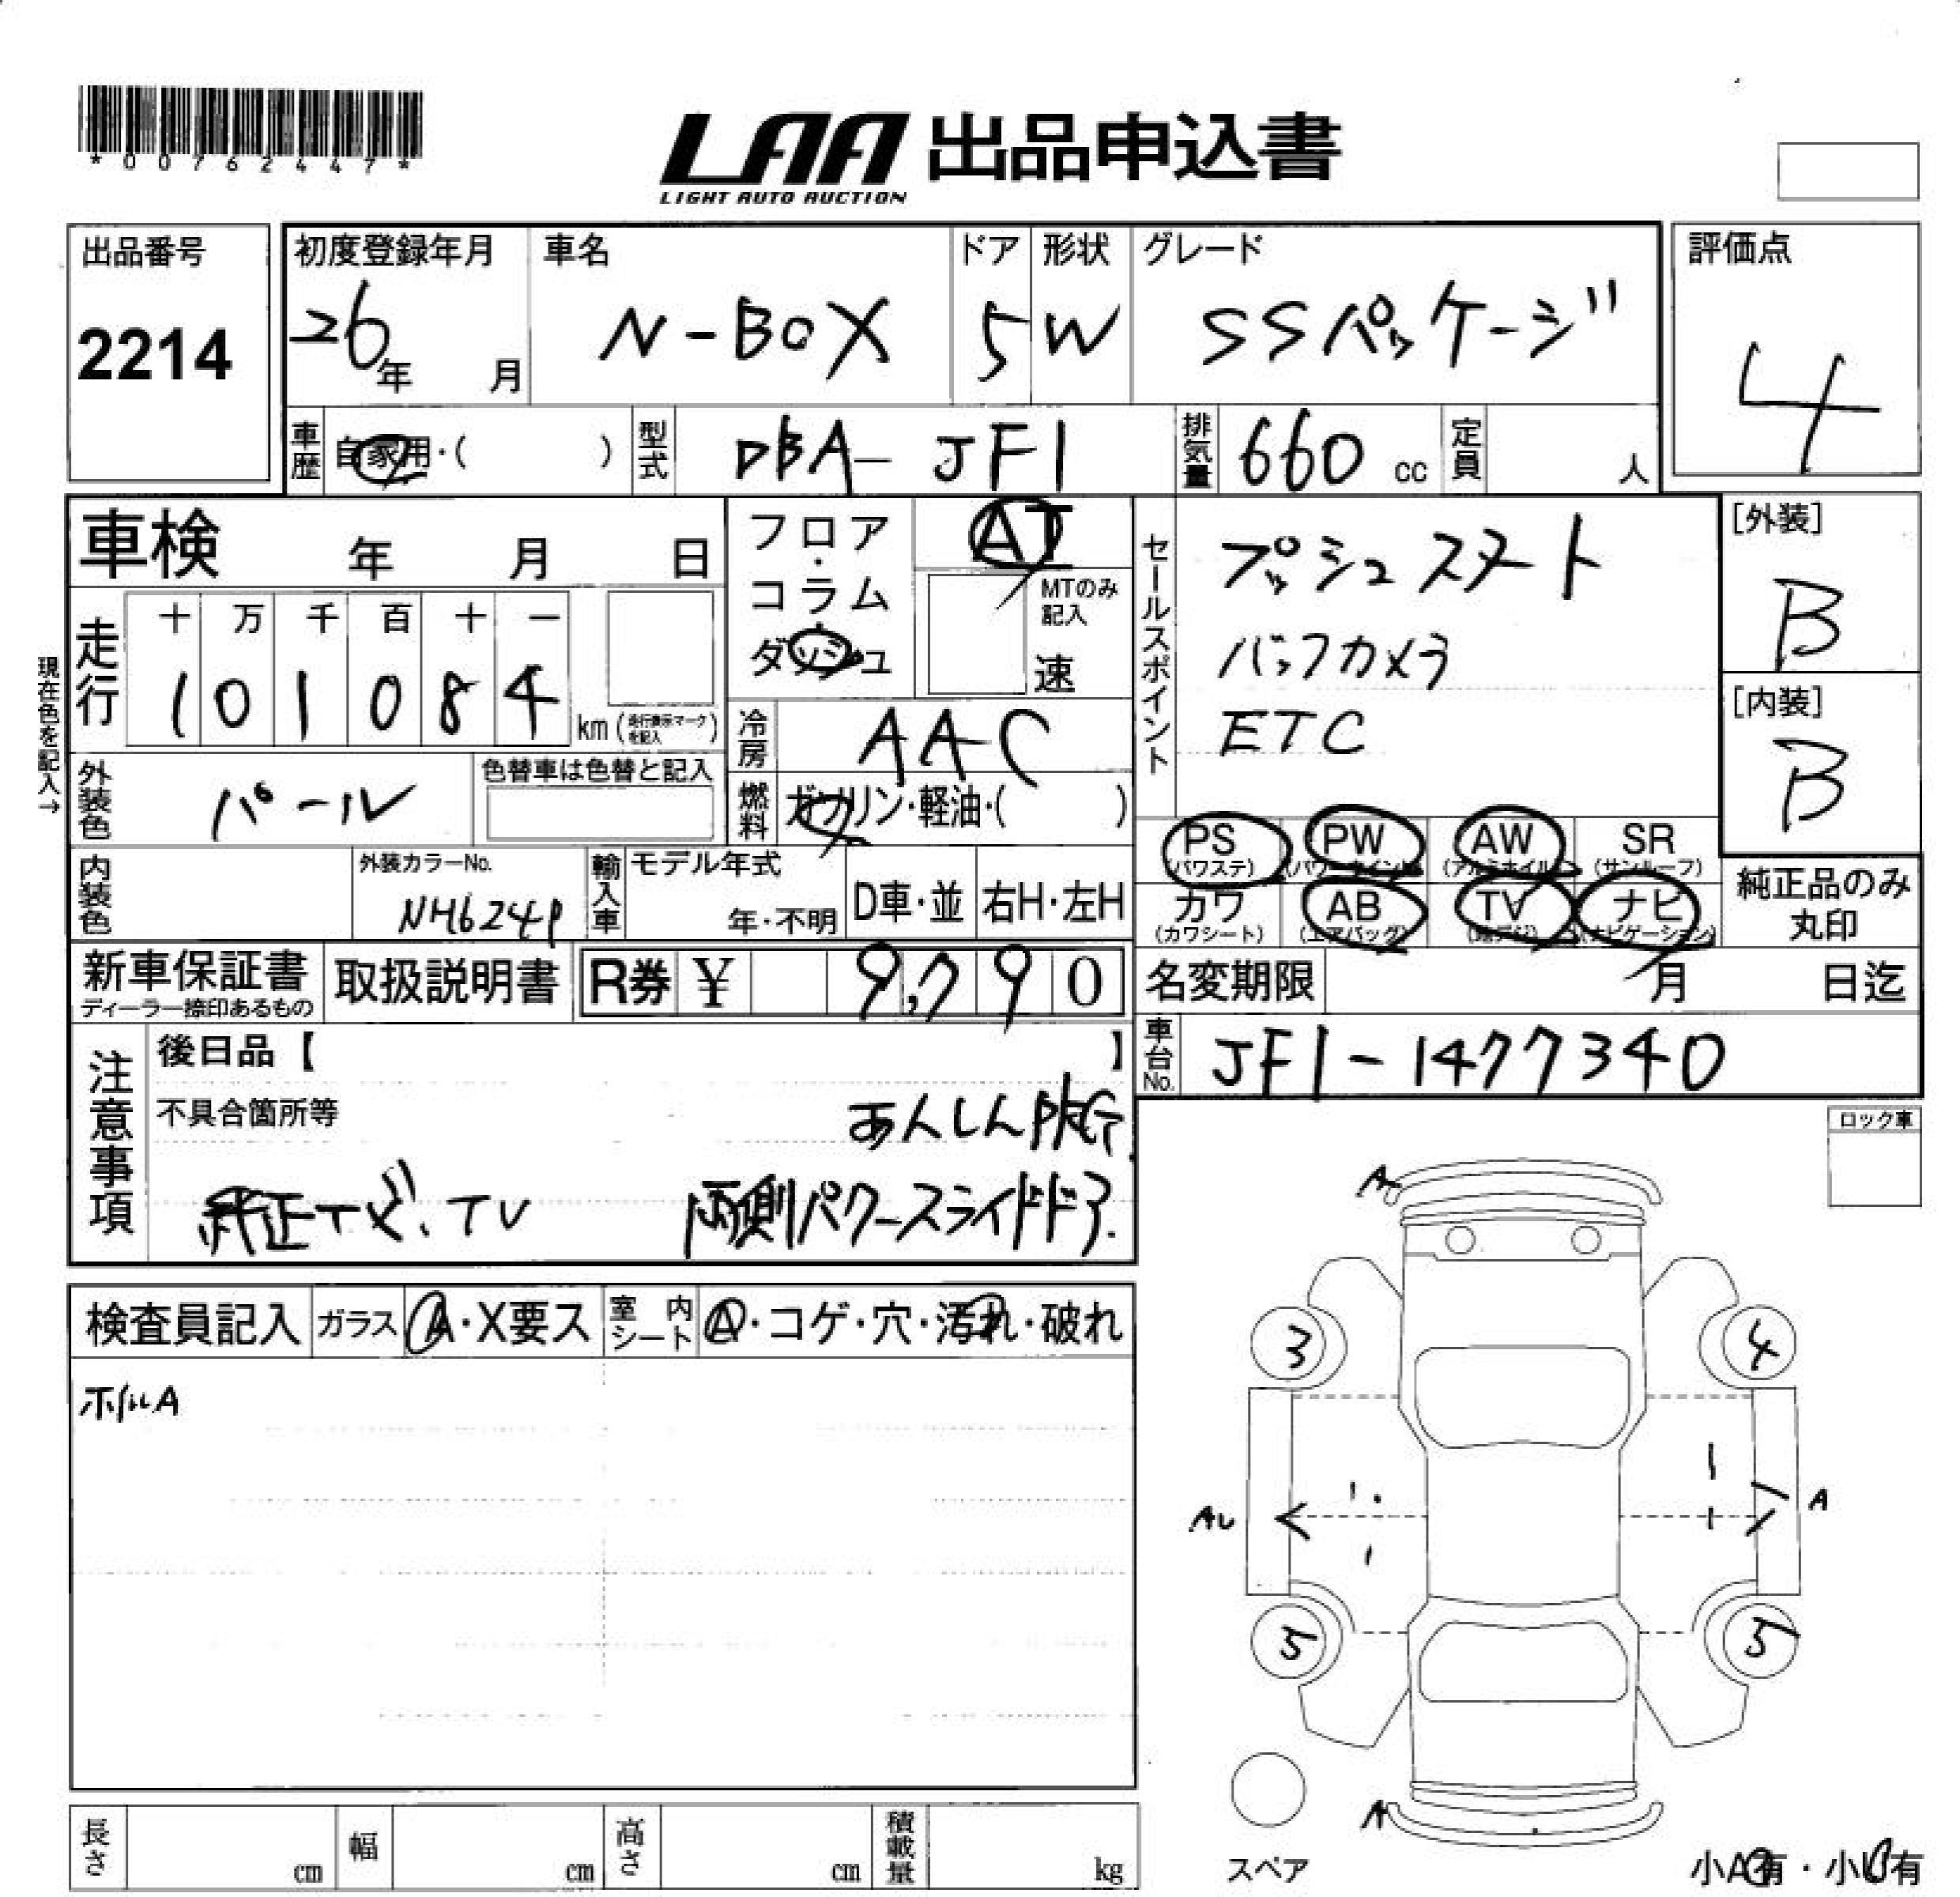 *00762447*
LAA 出品申込書
LIGHT AUTO AUCTION
出品番号
2214
初度登録年月
26年 月
車名
N-BOX
ドア
5
形状
W
グレード
SSパッケージ
評価点
4
車歴
自家用・( )
型式
DBA-JF1
排気量
660 cc
定員
人
車検 年 月 日
フロア・コラム・ダッシュ
AT
MTのみ記入
速
セールスポイント
プッシュスタート
バックカメラ
ETC
[外装]
B
[内装]
B
現在色を記入→
走行
十 万 千 百 十 一
1 0 1 0 8 4
km (走行表示マークを記入)
冷房
AAC
外装色
パール
色替車は色替と記入
燃料
ガソリン・軽油・( )
PS
(パワステ)
PW
(パワーウインド)
AW
(アルミホイル)
SR
(サンルーフ)
内装色
外装カラーNo.
NH624P
輸入車
モデル年式
年・不明
D車・並
右H・左H
カワ
(カワシート)
AB
(エアバッグ)
TV
(地デジ)
ナビ
(ナビゲーション)
純正品のみ
丸印
新車保証書
ディーラー捺印あるもの
取扱説明書
R券 ¥ 9,790
名変期限 月 日迄
注意事項
後日品【 】
車台No.
JF1-1477340
不具合箇所等
あんしんPKG
純正ナビ、TV 両側パワースライドドア.
ロック車
検査員記入
ガラス
A・X要ス
室内シート
A・コゲ・穴・汚れ・破れ
ホイルA
A
3
4
AU
A
5
5
A
スペア
小A有・小U有
長さ cm
幅 cm
高さ cm
積載量 kg